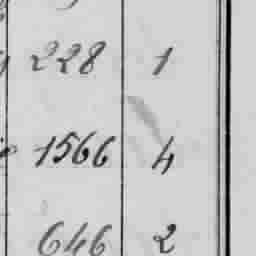 228 1
1566 4
646 2